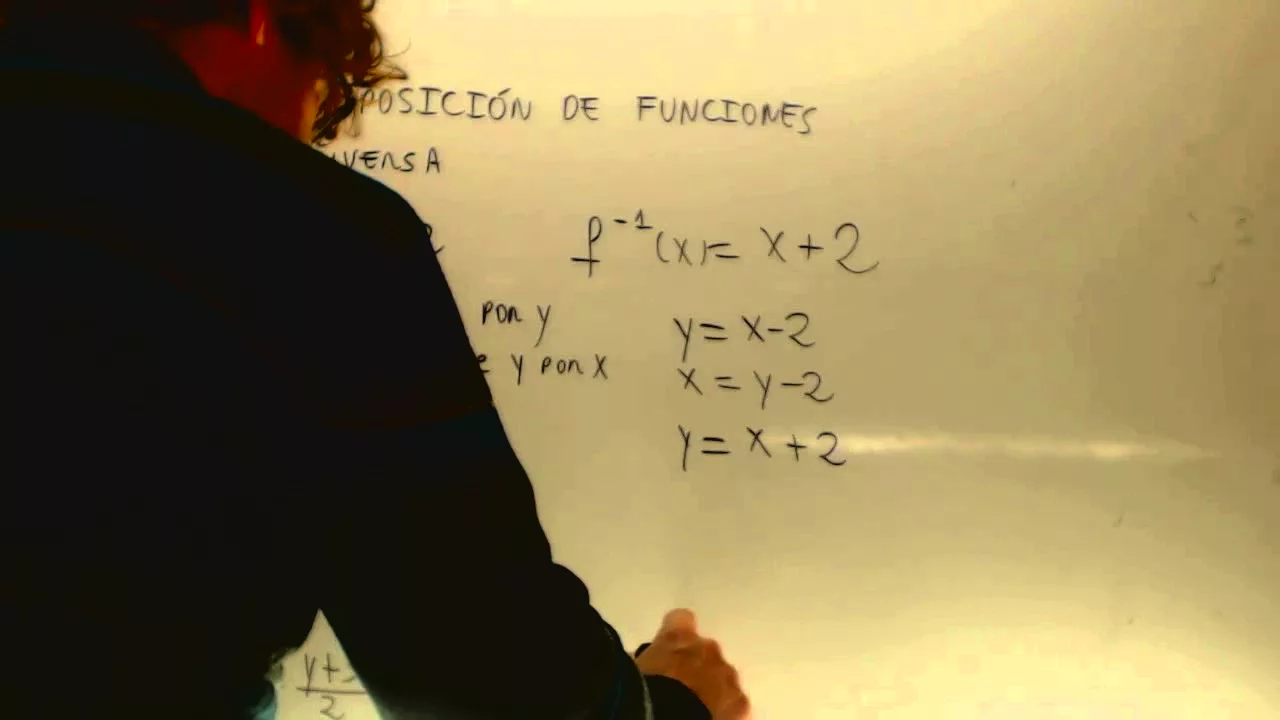 POSICIÓN DE FUNCIONES
VERSA
f⁻¹(x)= x+2
por y
y = x-2
y por x
x = y-2
y = x+2
y+
2